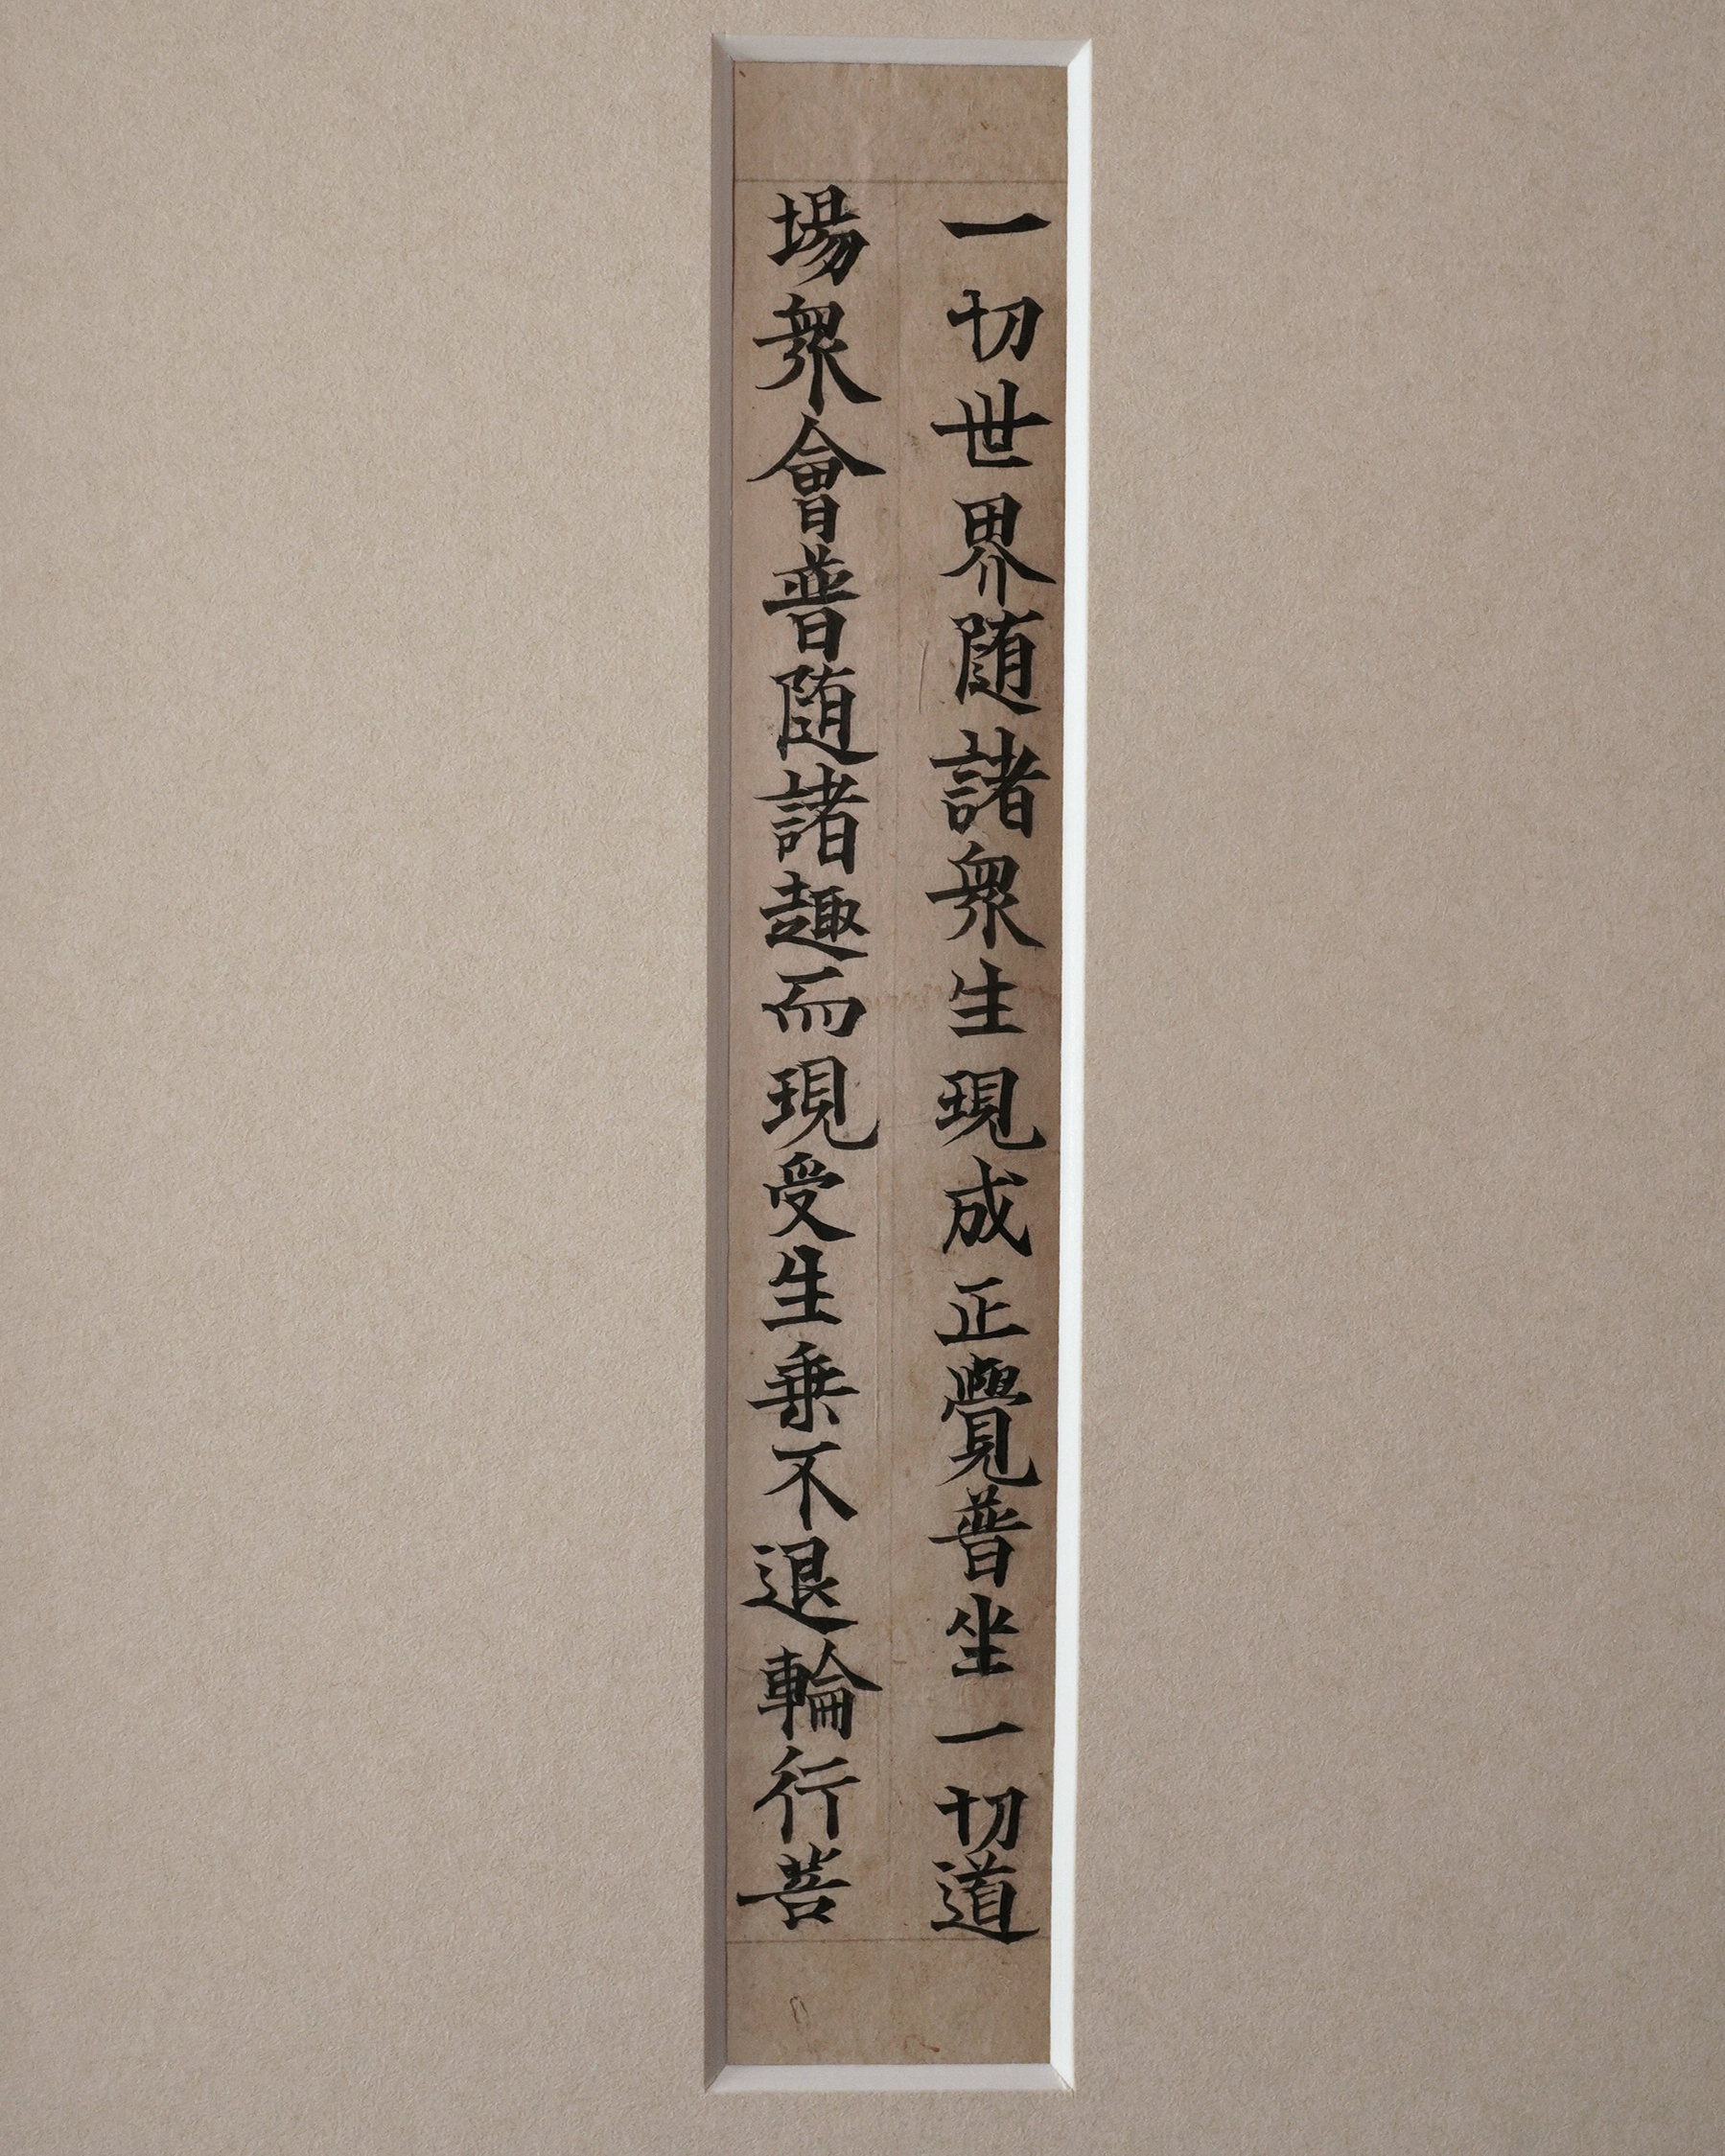 一切世界随諸衆生現成正覺普坐一切道
場衆會普随諸趣而現受生乗不退輪行菩